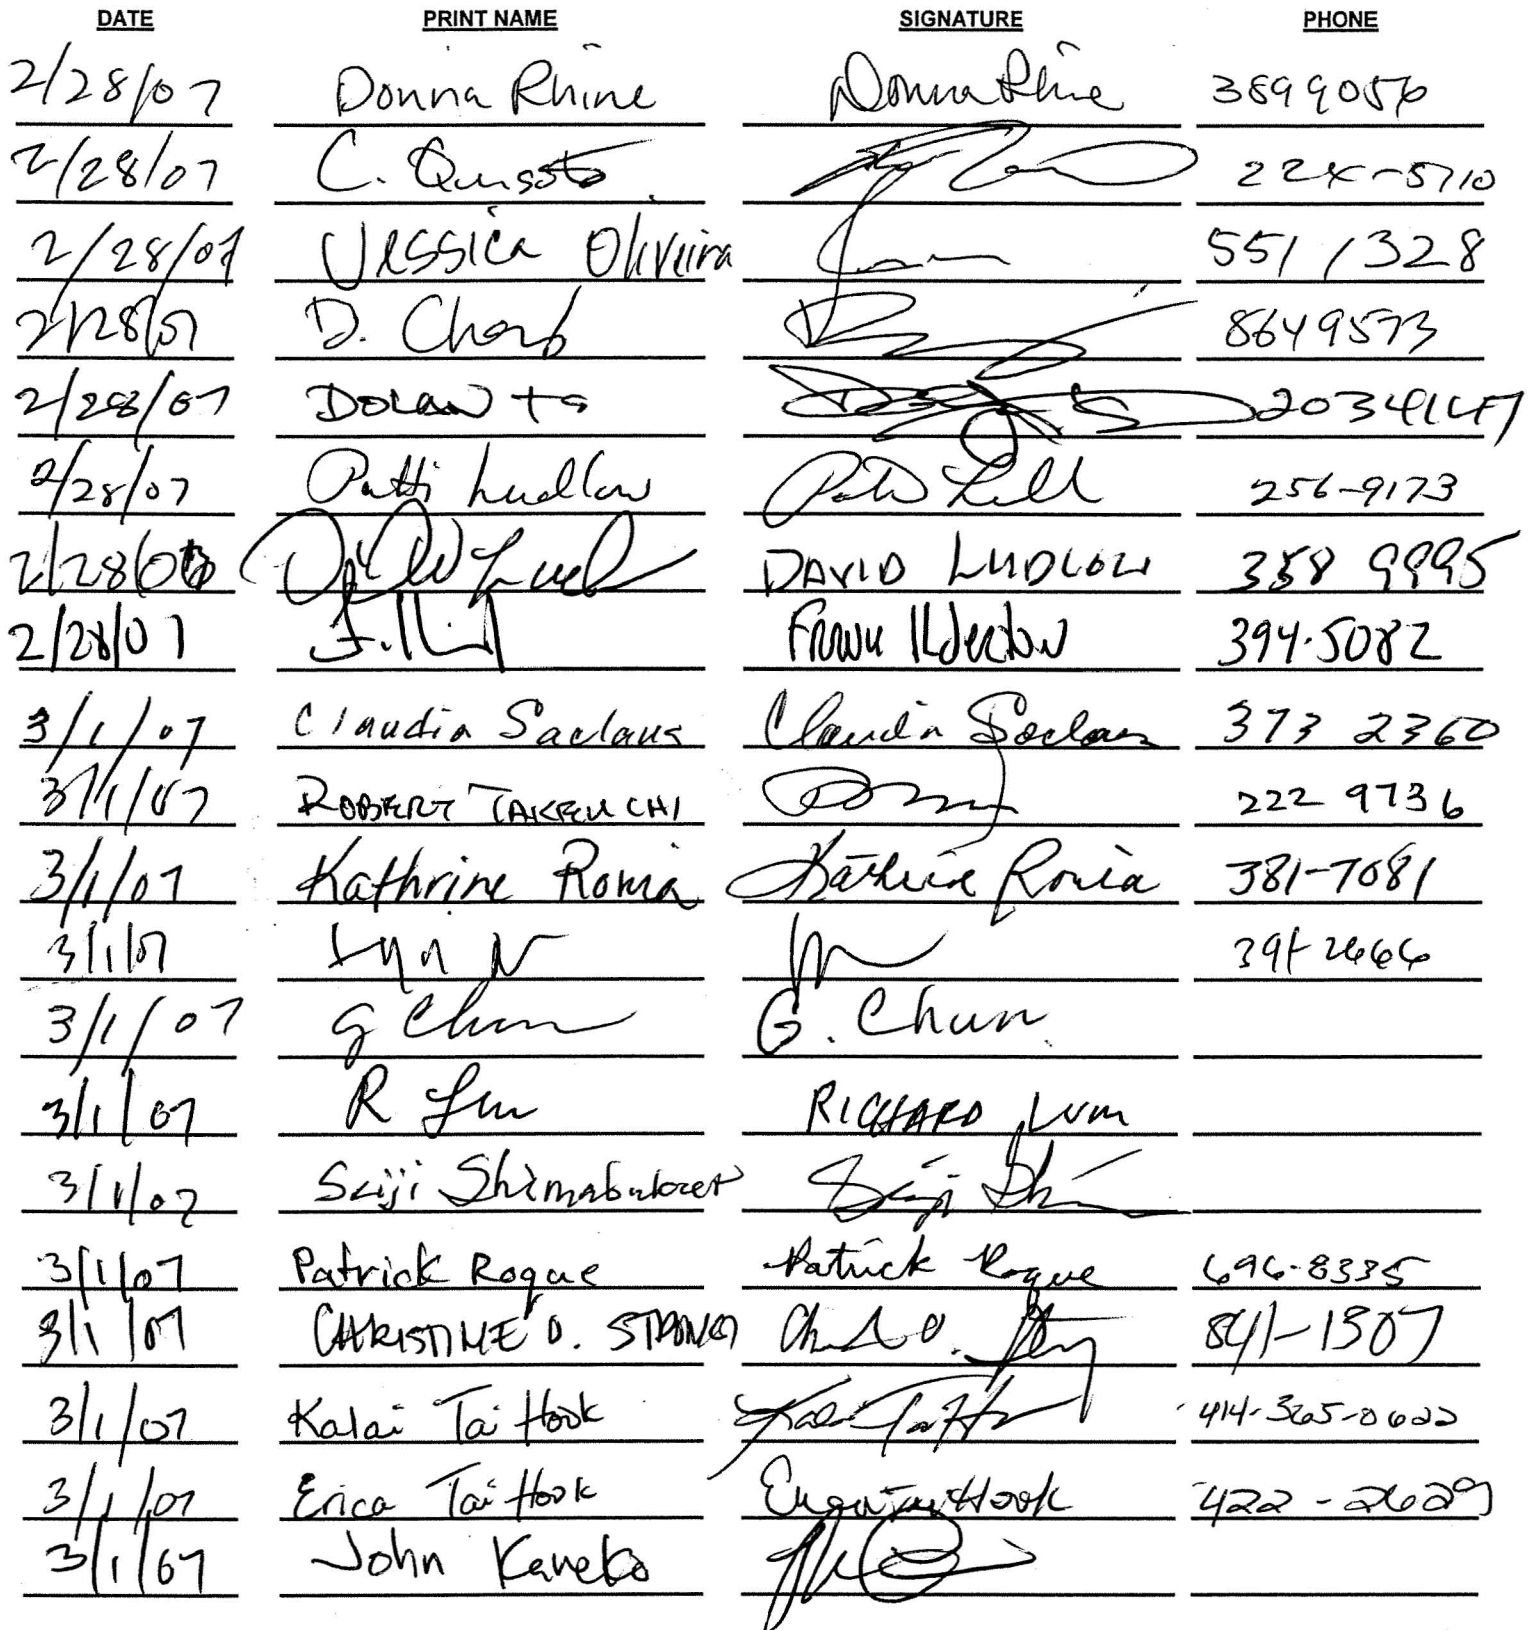 DATE PRINT NAME SIGNATURE PHONE
2/28/07 Donna Rhine Donna Rhine 3899056
2/28/07 C. 224-5710
2/28/07 Jessica Oliveira 551 1328
2/28/07 D. 8649573
2/28/07
2/28/07 Patti Ludlow 256-9173
2/28/07 David Ludlow DAVID LUDLOW 358 9995
2/28/07 394-5082
3/1/07 Claudia Saclaus Claudia Saclaus 373 2360
3/1/07 ROBERT TAKEUCHI 222 9736
3/1/07 Kathrine Ronia Kathrine Ronia 381-7081
3/1/07 Lyn N 391-2666
3/1/07 G Chun G. Chun
3/1/07 R Lum RICHARD LUM
3/1/07 Seiji
3/1/07 Patrick Roque Patrick Roque 696-8335
3/1/07 CHRISTINE O. STRONG 841-1307
3/1/07 Kalai Tai Hook 414-365-0622
3/1/07 Erica Tai Hook Erica Tai Hook 422-2629
3/1/07 John Kaneko